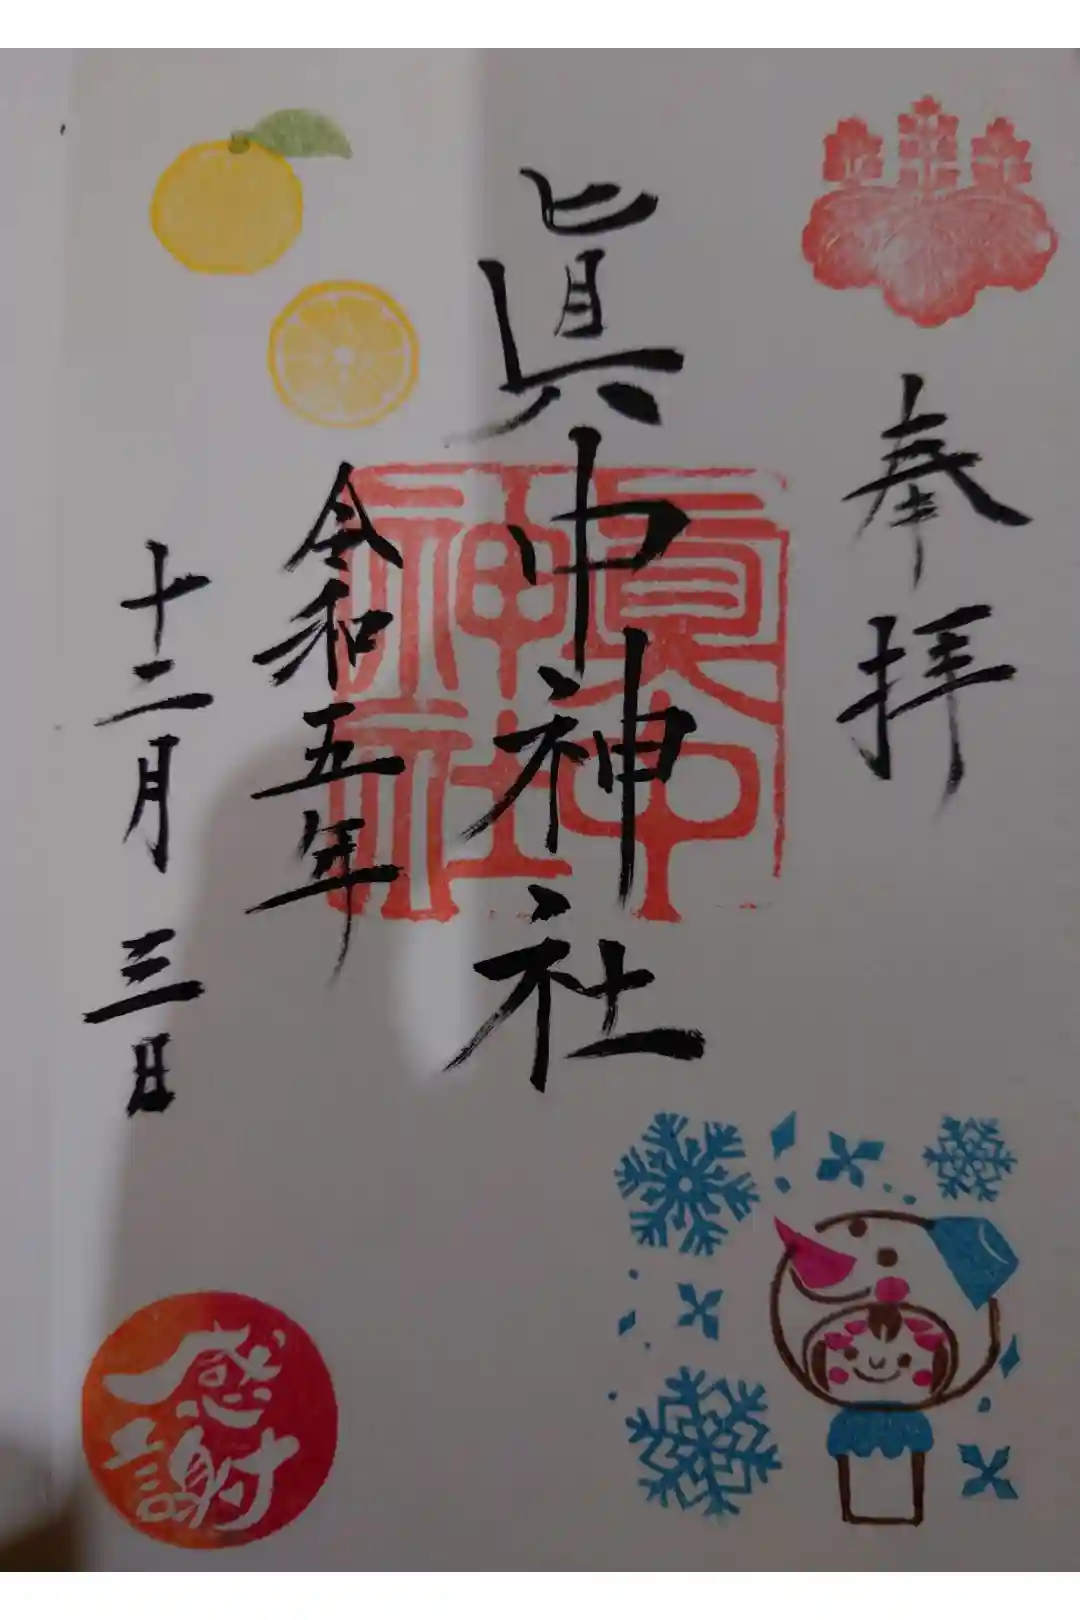 奉拝
眞中神社
眞中
神社
令和五年
十二月三日
感
謝